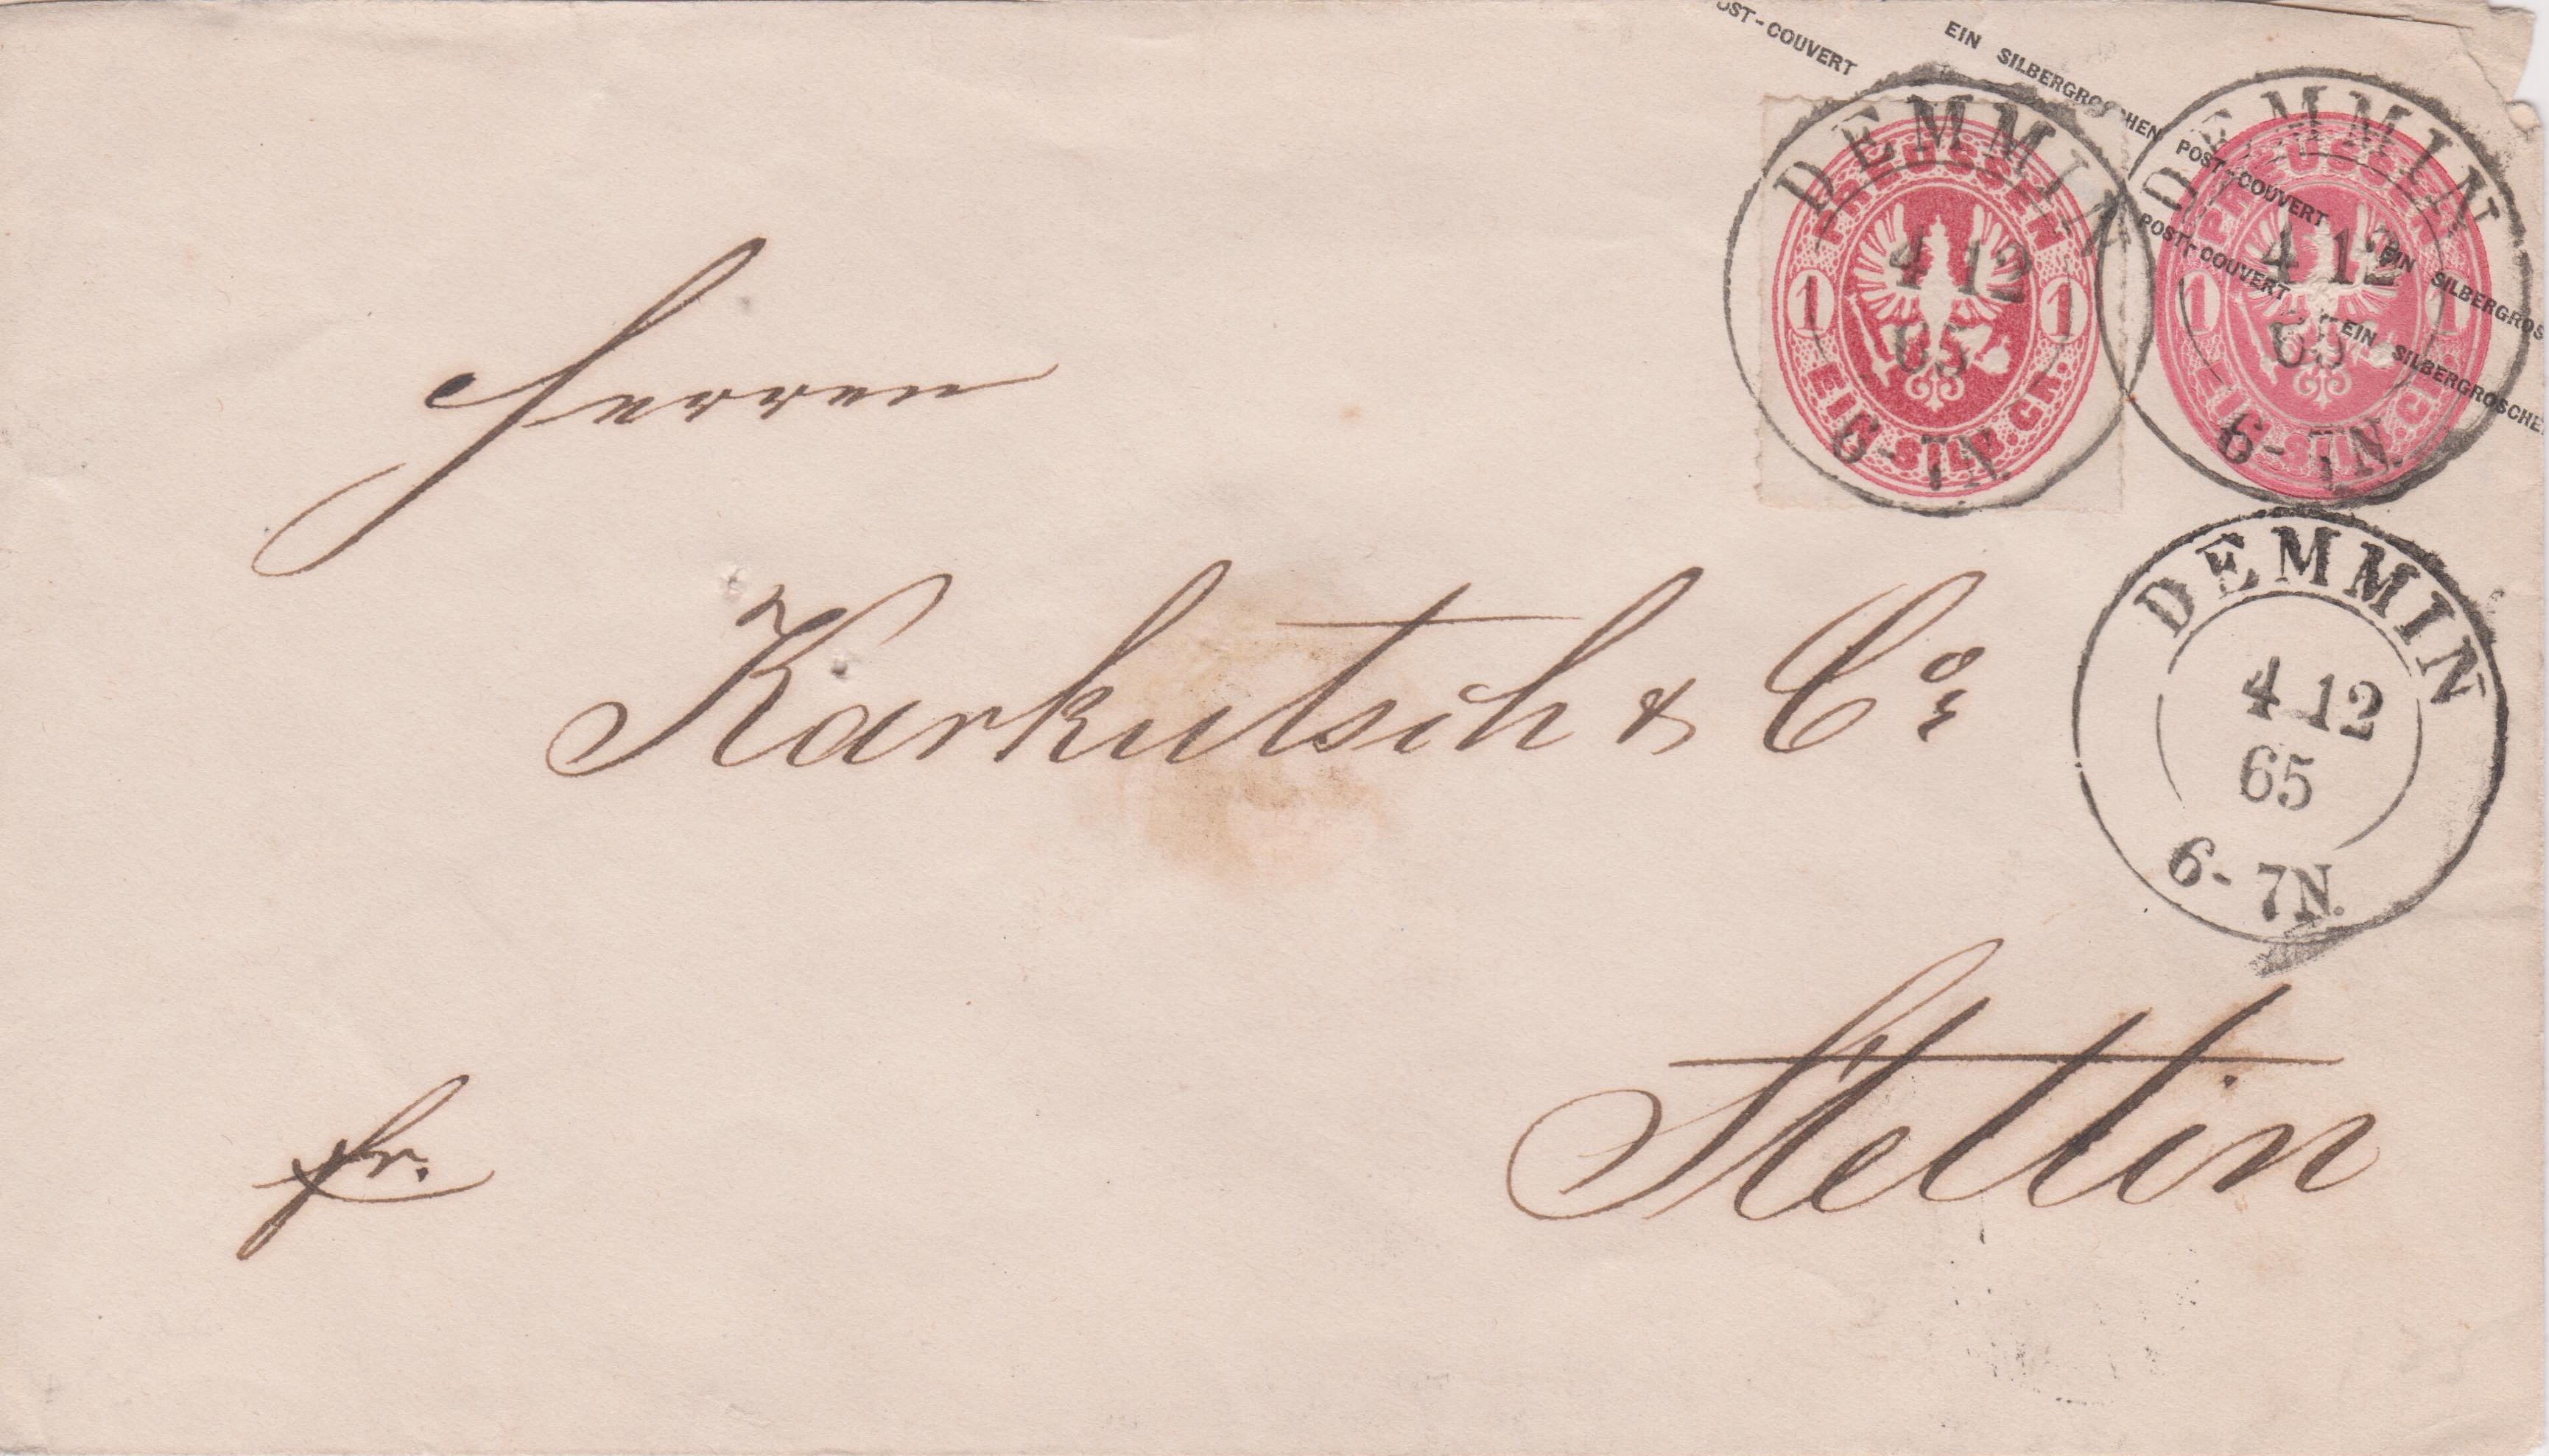 POST-COUVERT EIN SILBERGROSCHEN POST-COUVERT EIN SILBERGROS
POST-COUVERT EIN SILBERGROSCHE
PREUSSEN
1 1
EIN SILB. GR.
DEMMIN
4 12
65
6-7N.
PREUSSEN
1 1
EIN SILB. GR.
DEMMIN
4 12
65
6-7N.
DEMMIN
4 12
65
6-7N.
Herren
Karkutsch & Co
Stettin
fr.